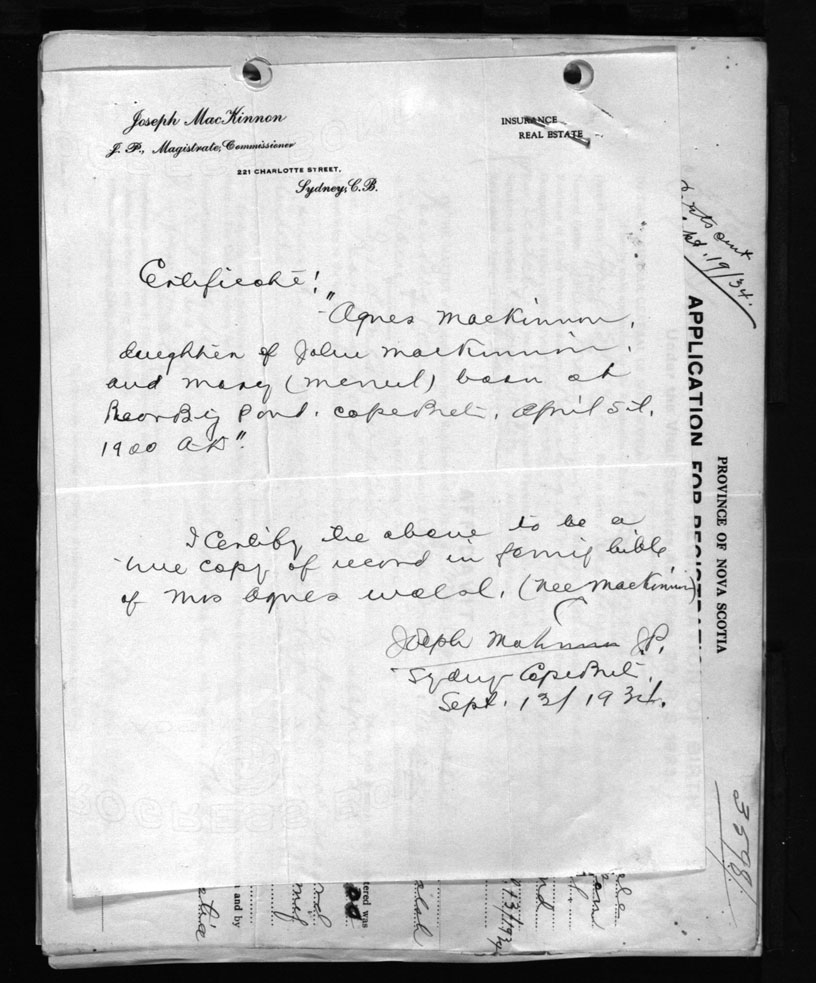 Joseph MacKinnon
J. P., Magistrate, Commissioner
221 CHARLOTTE STREET,
Sydney, C.B.
INSURANCE
REAL ESTATE
Certificate!
"Agnes MacKinnon,
daughter of John MacKinnon.
and Mary (        ) born at
Rear Big Pond. Cape Bret. April 5th.
1900 AD".
I Certify the above to be a
true copy of record in family bible
of Mrs Agnes Walsh. (nee MacKinnon)
Joseph MacKinnon J.P.
Sydney Cape Bret.
Sept. 13/1934.
19/34.
APPLICATION FOR REGISTRATION OF BIRTH
PROVINCE OF NOVA SCOTIA
3598
and by
tered was